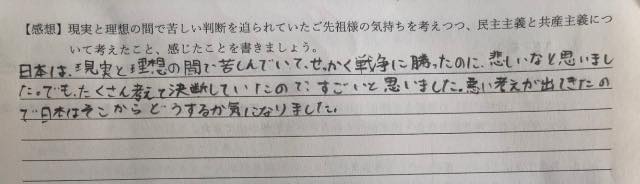 【感想】現実と理想の間で苦しい判断を迫られていたご先祖様の気持ちを考えつつ、民主主義と共産主義につ
いて考えたこと、感じたことを書きましょう。
日本は、現実と理想の間で苦しんでいて、せっかく戦争に勝ったのに、悲しいなと思いまし
た。でも、たくさん考えて決断していたので、すごいと思いました。悪い考えが出てきたの
で日本はそこからどうするか気になりました。